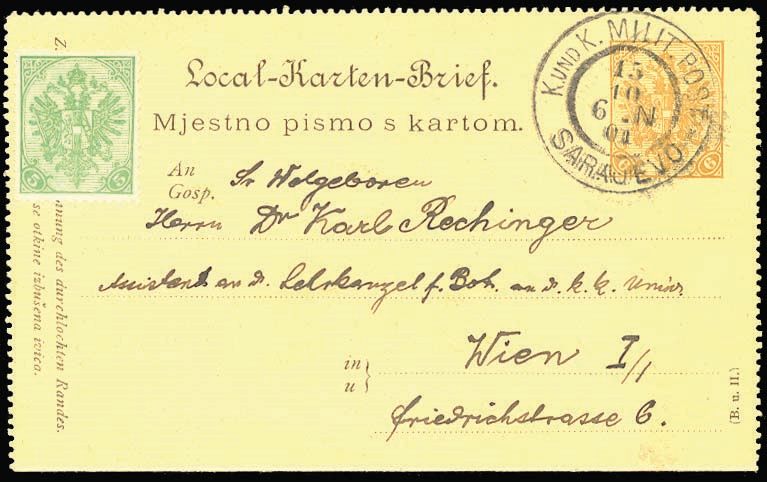 Local-Karten-Brief.
Mjestno pismo s kartom.
K. UND K. MILIT. POST
15
10
6 - N
01
SARAJEVO
5 5
6
An
Gosp.
Sr Wolgeboren
Herrn Dr Karl Rechinger
Assistent an d. Lehrkanzel f. Bot. an d. k. k. Univ.
in
u
Wien I/1
Friedrichstrasse 6.
(B. u. H.)
Z.
des durchlochten Randes.
se otkine izbušena ivica.